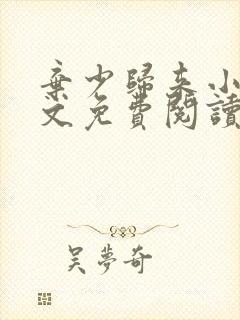 棄少歸來小
文免費閱讀
吴夢奇